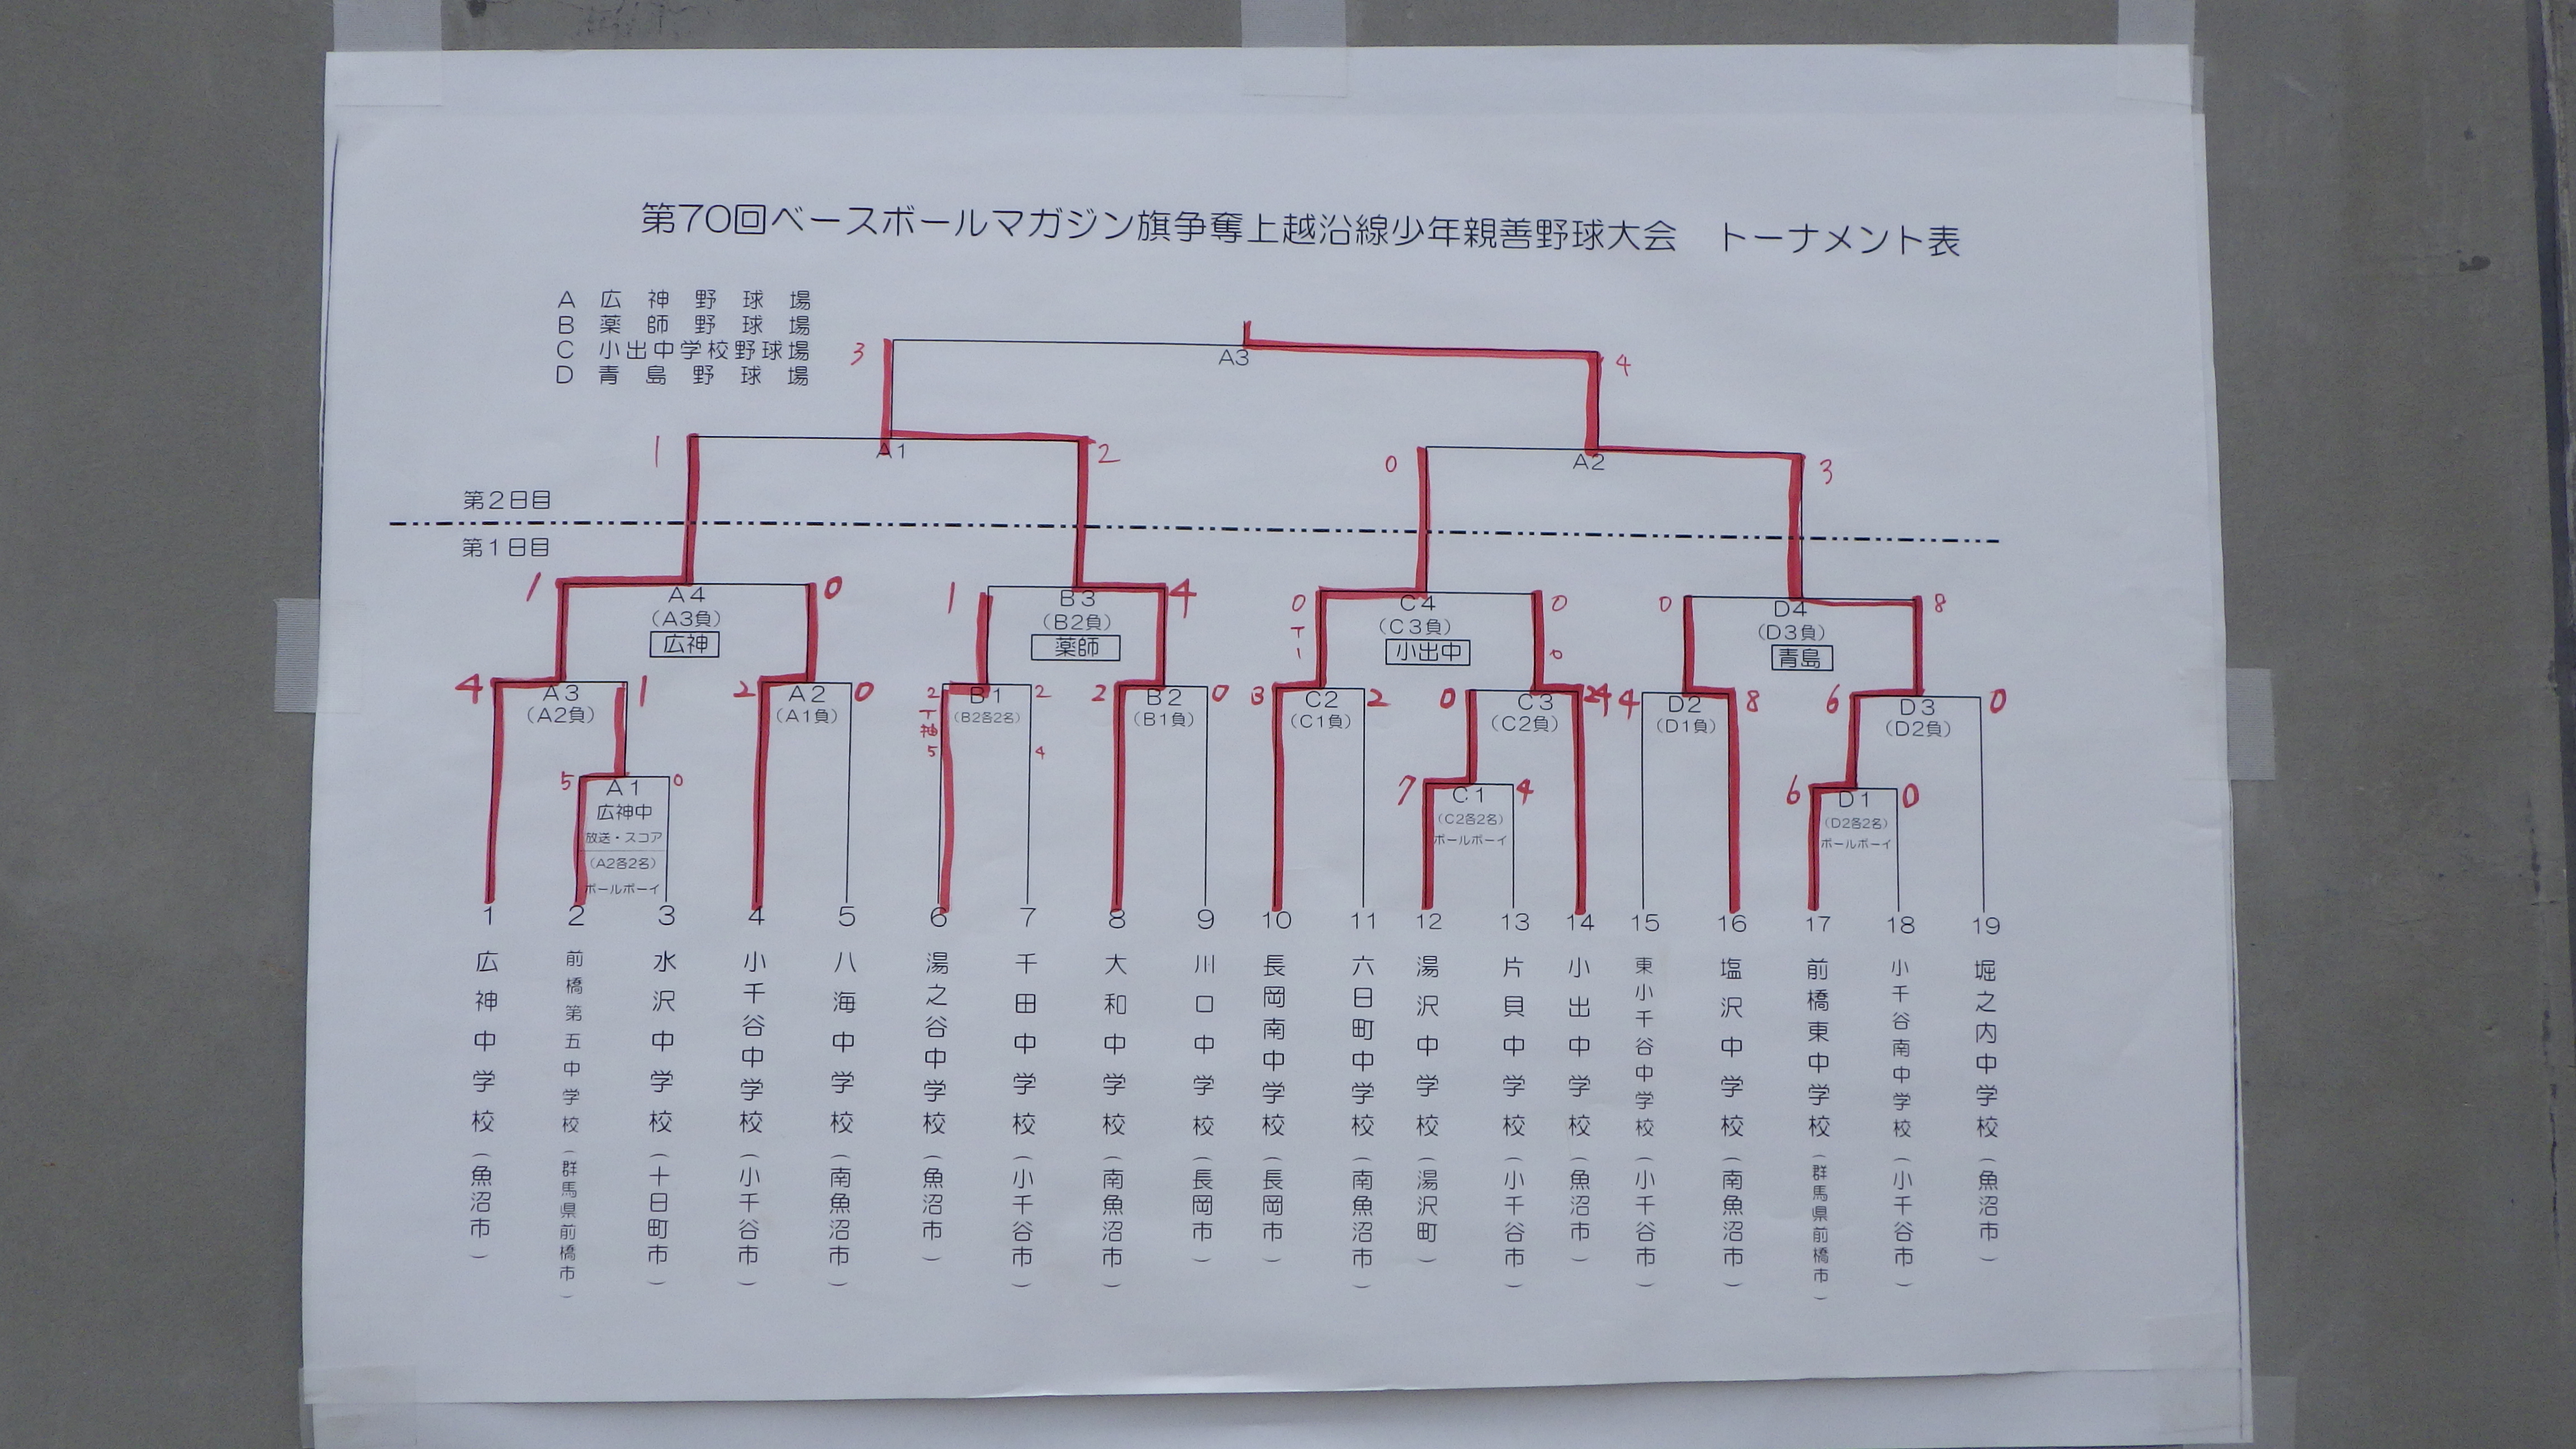 第70回ベースボールマガジン旗争奪上越沿線少年親善野球大会　トーナメント表
A 広神野球場
B 薬師野球場
C 小出中学校野球場
D 青島野球場
3 A3 4
1 A1 2 0 A2 3
第2日目
第1日目
1 A4 0 1 B3 4 0 C4 0 0 D4 8
(A3負) (B2負) T (C3負) (D3負)
広神 薬師 1 小出中 0 青島
4 A3 1 2 A2 0 2 B1 2 2 B2 0 3 C2 2 0 C3 4 D2 8 6 D3 0
(A2負) (A1負) T (B2各2名) (B1負) (C1負) (C2負) (D1負) (D2負)
抽
5 4
5 A1 0 7 C1 4 6 D1 0
広神中 (C2各2名) (D2各2名)
放送・スコア ボールボーイ ボールボーイ
(A2各2名)
ボールボーイ
1 2 3 4 5 6 7 8 9 10 11 12 13 14 15 16 17 18 19
広神中学校(魚沼市)
前橋第五中学校(群馬県前橋市)
水沢中学校(十日町市)
小千谷中学校(小千谷市)
八海中学校(南魚沼市)
湯之谷中学校(魚沼市)
千田中学校(小千谷市)
大和中学校(南魚沼市)
川口中学校(長岡市)
長岡南中学校(長岡市)
六日町中学校(南魚沼市)
湯沢中学校(湯沢町)
片貝中学校(小千谷市)
小出中学校(魚沼市)
東小千谷中学校(小千谷市)
塩沢中学校(南魚沼市)
前橋東中学校(群馬県前橋市)
小千谷南中学校(小千谷市)
堀之内中学校(魚沼市)